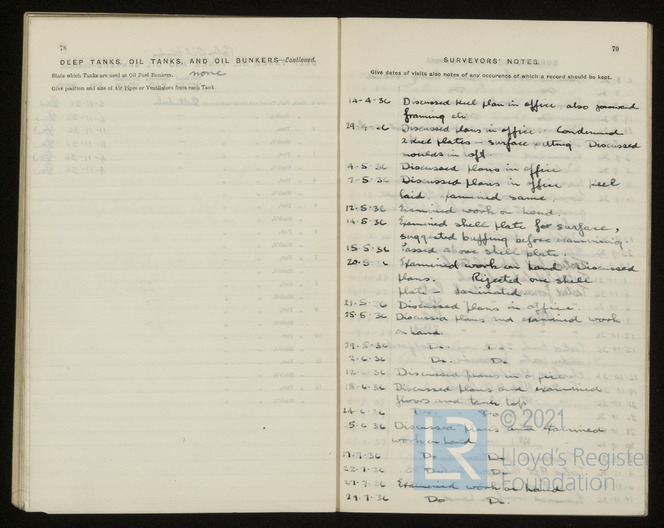 78
DEEP TANKS, OIL TANKS, AND OIL BUNKERS—Continued.
State which Tanks are used as Oil Fuel Bunkers. none
Give position and size of Air Pipes or Ventilators from each Tank.
79
SURVEYORS' NOTES.
Give dates of visits also notes of any occurence of which a record should be kept.
14-4-36 Discussed keel plan in office, also forward
framing etc
Discussed plans in office. Condemned
2 keel plates - surface pitting Discussed
moulds in loft.
4-5-36 Discussed plans in office
7-5-36 Discussed plans in office Keel
laid examined same.
12-5-36 Examined work on hand.
14-5-36 Examined shell plate for surface,
suggested buffing before examining.
15-5-36 Passed above shell plate.
20-5-36 Examined work on hand Discussed
plans. Rejected one shell
plate - laminated
21-5-36 Discussed plans in office.
25-5-36 Discussed plans and examined work
on hand.
29-5-36 Do. Do.
2-6-36 Do. Do
12-6-36 Discussed plans in office
18-6-36 Discussed plans and examined
floors and tank top
24-6-36 Do
25-6-36 Discussed plans and examined
work on hand
17-7-36 Do Do
22-7-36 Do Do
27-7-36 Examined work on hand
29-7-36 Do Do.
© 2021
LR
Lloyd's Register
Foundation